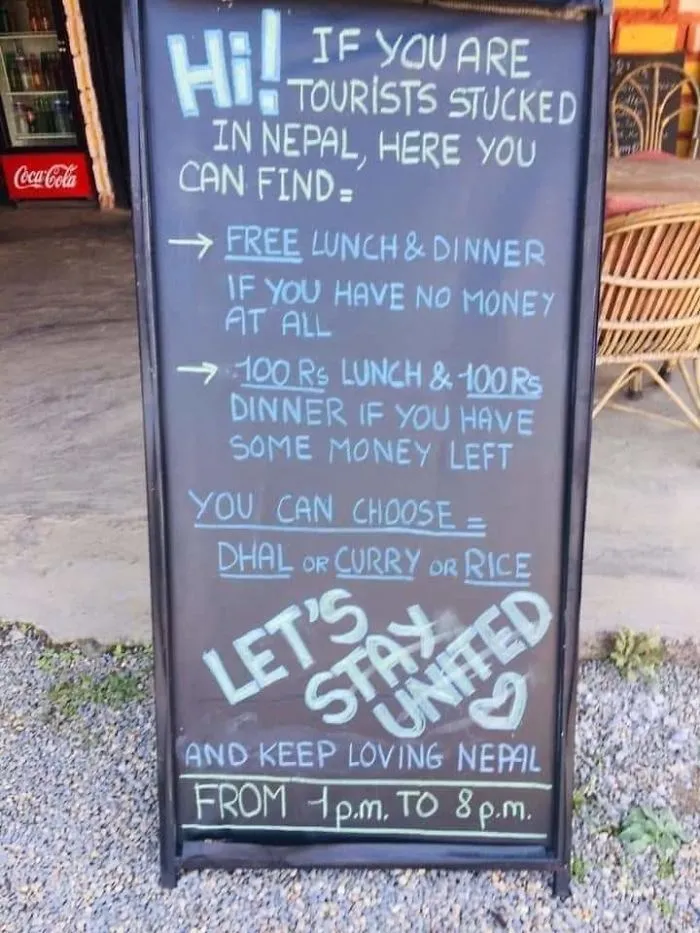 Hi! IF YOU ARE
TOURISTS STUCKED
IN NEPAL, HERE YOU
CAN FIND=
→ FREE LUNCH & DINNER
IF YOU HAVE NO MONEY
AT ALL
→ 100 Rs LUNCH & 100 Rs
DINNER IF YOU HAVE
SOME MONEY LEFT
YOU CAN CHOOSE=
DHAL OR CURRY OR RICE
LET'S
STAY
UNITED
AND KEEP LOVING NEPAL
FROM 1 p.m. TO 8 p.m.
Coca-Cola